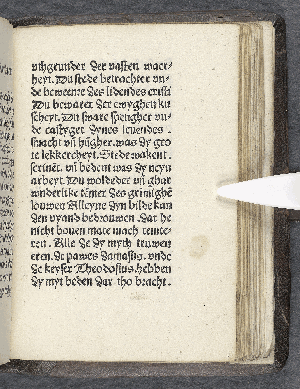 vthgrunder der vasten waer-
heyt. Du stede betrachter vn-
de beweenre des lidendes cristi
Du bewarer der ewyghen ku
scheyt. Du sware pyngher vn-
de castyger dynes leuendes.
smacht vn hügher. was dy gro
te lekkercheyt. Stede waken
serines. vn bedent was dy neyn
arbeyt. Du woldeder vn ghar
vnderlike temer des grimighē
louwen Alleyne dyn bilde kan
den vyand bedwuen. dat he
nicht bouen mate mach temte-
ren. Alle de dy myth truwen
eren. de pawes damasus. vnde
de keyser Theodosius. hebben
dy myt beden dar tho bracht.